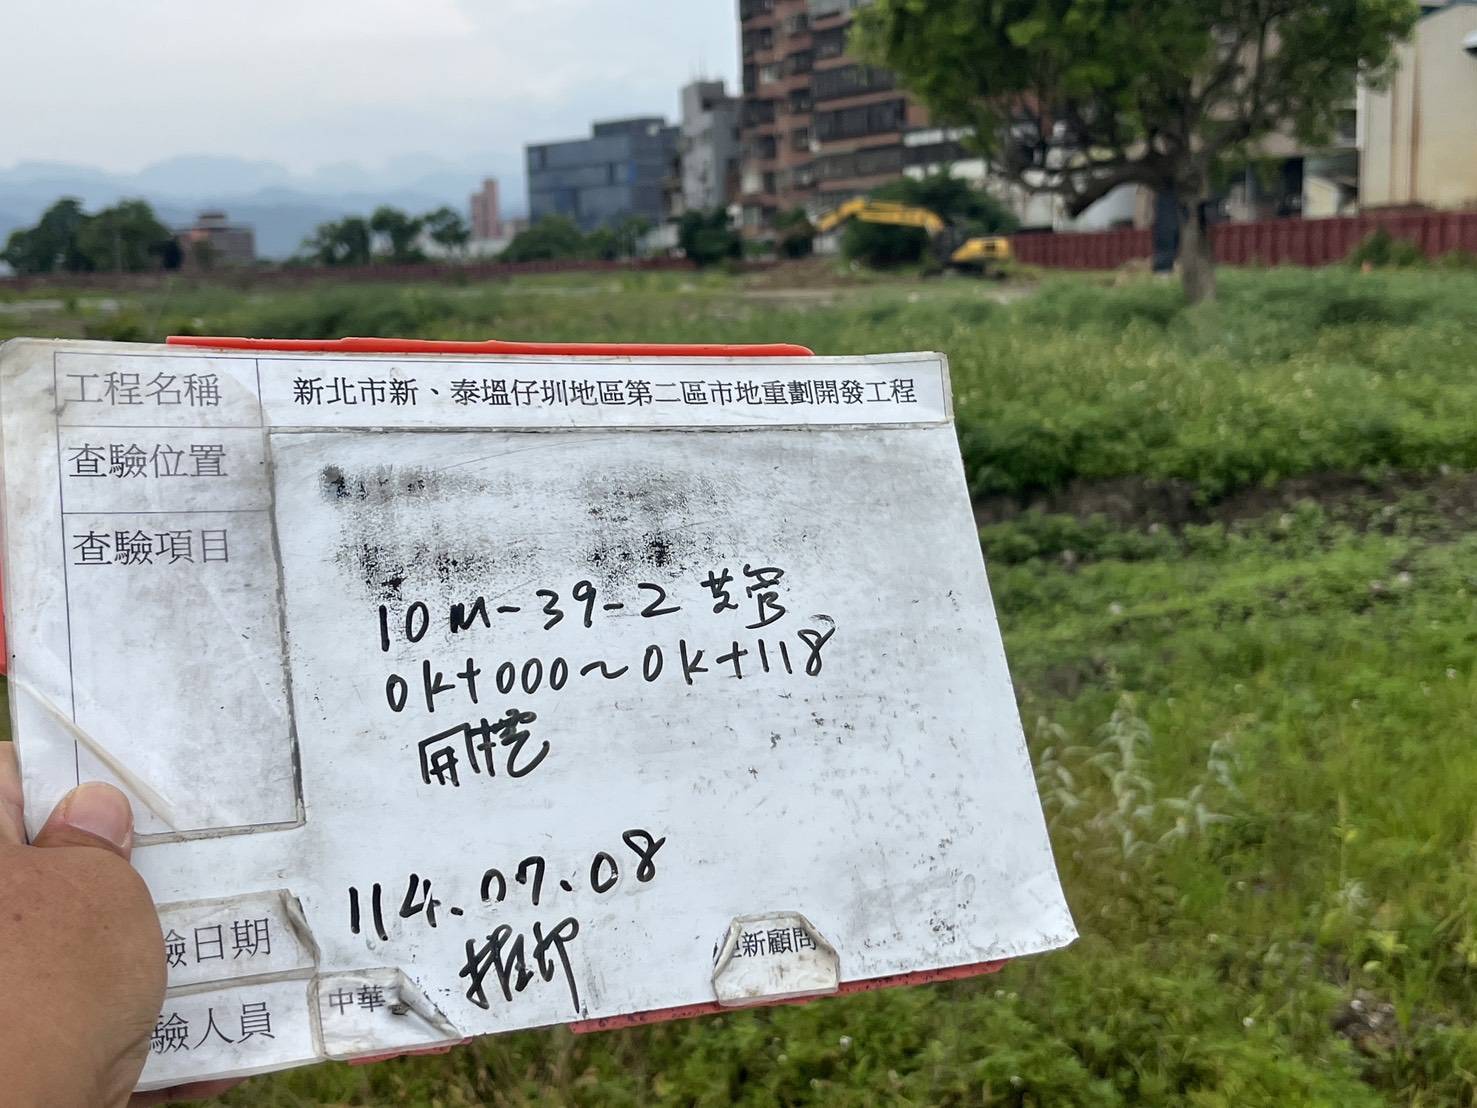 工程名稱 新北市新、泰塭仔圳地區第二區市地重劃開發工程
查驗位置
查驗項目
10M-39-2 共管
0k+000~0k+118
開挖
驗日期 114.07.08
驗人員 中華
新顧問